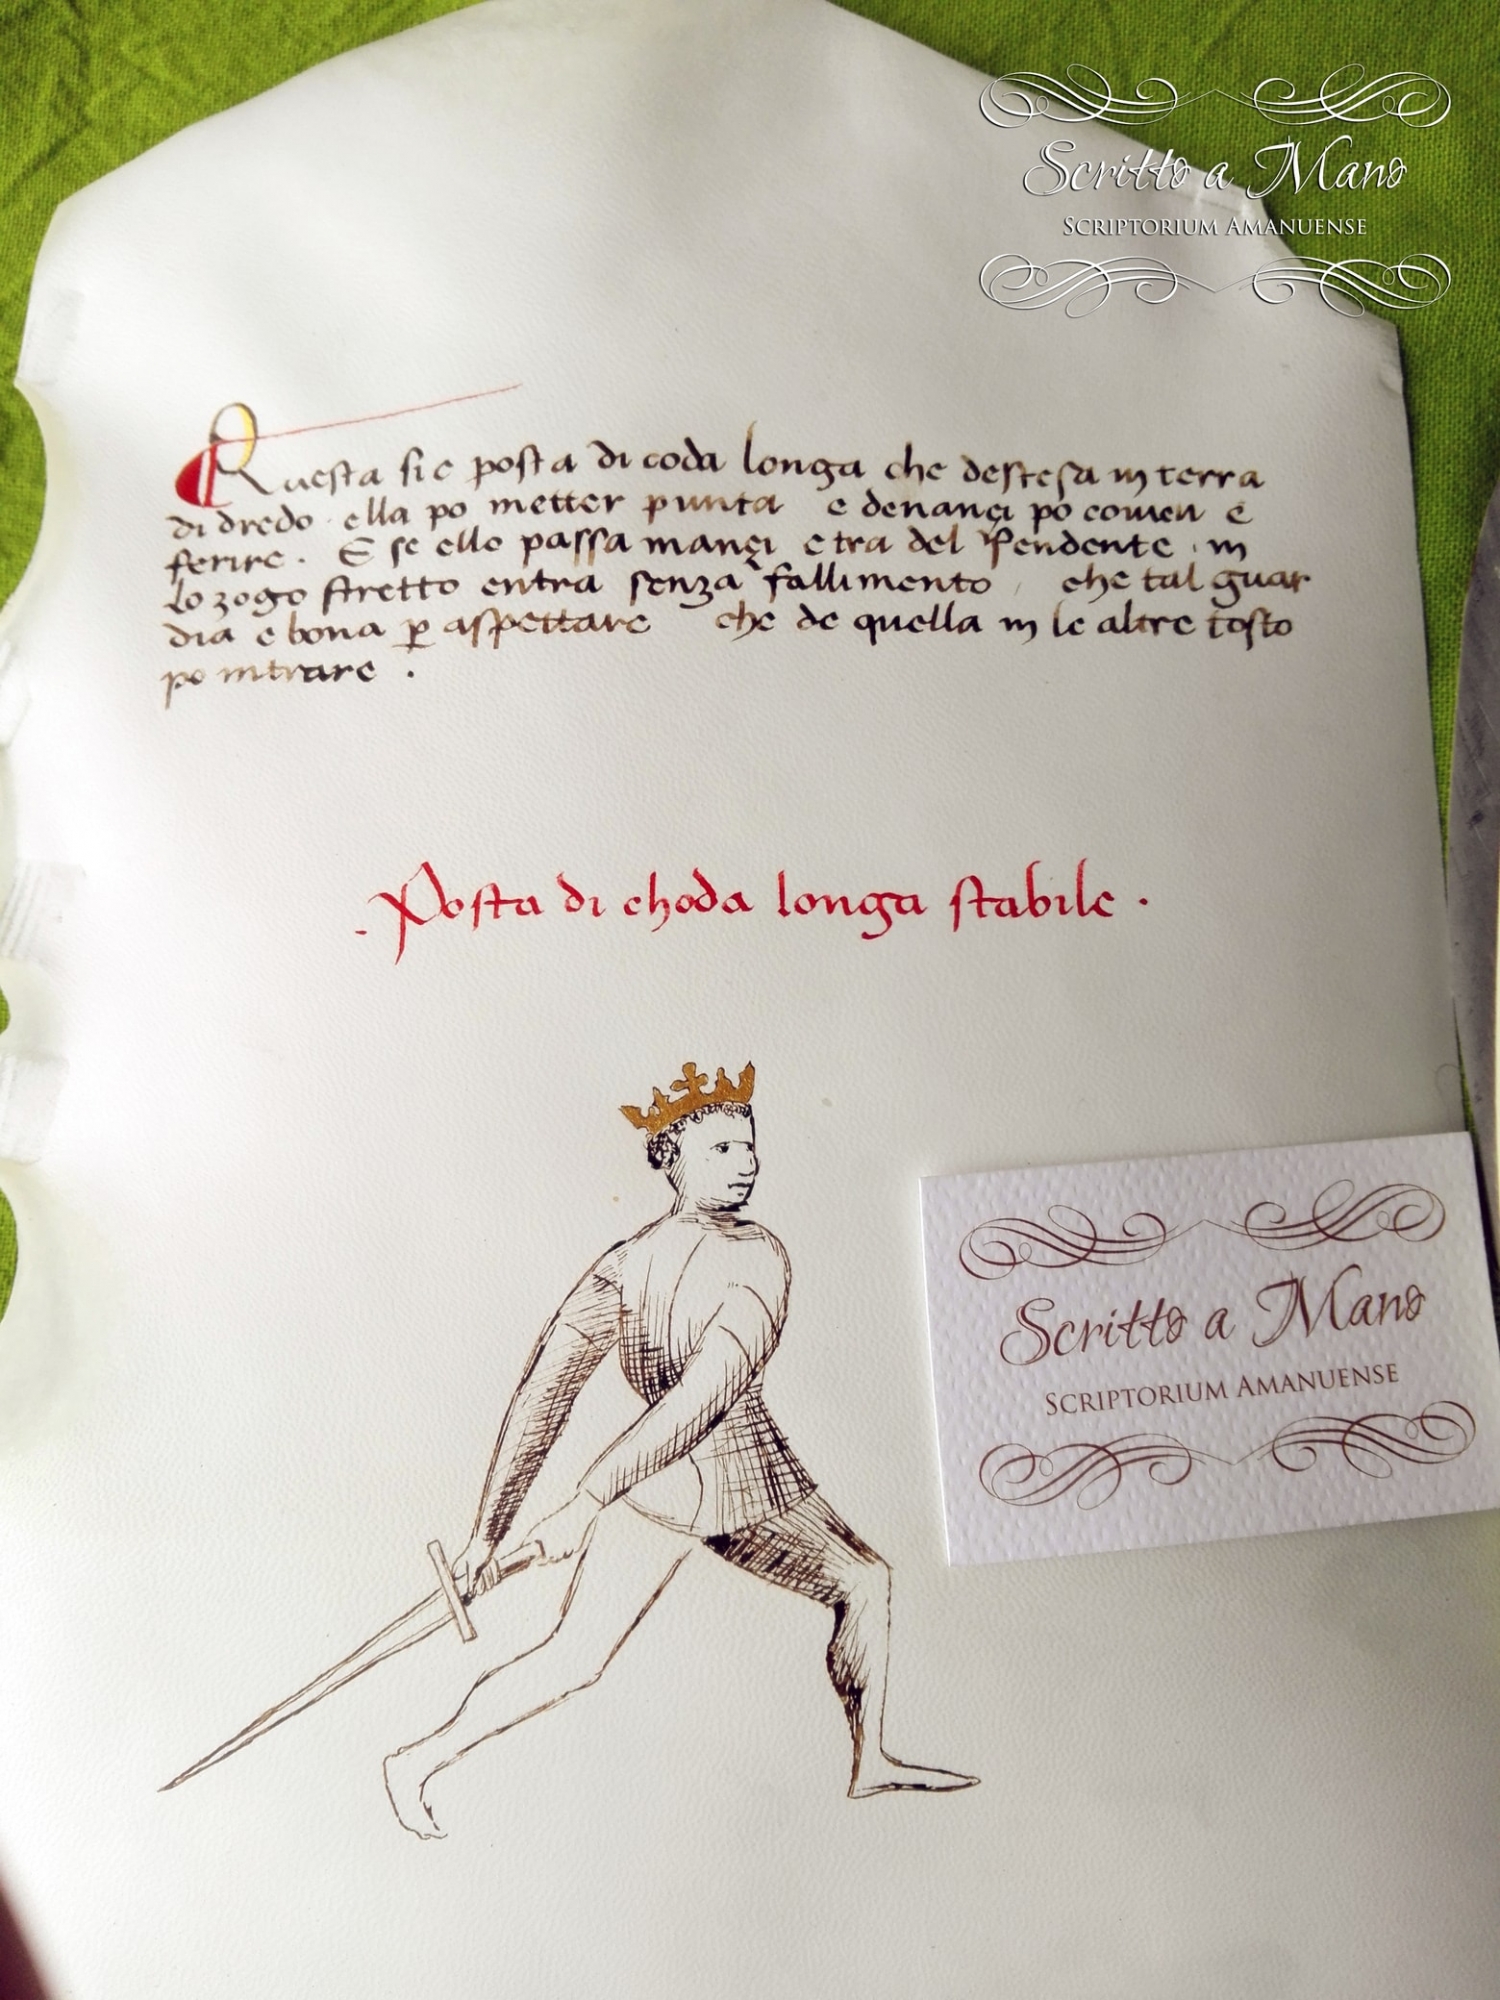 Scritto a Mano
Scriptorium Amanuense
Questa sie posta di coda longa che destesa in terra
di dredo ella po metter punta e denançi po couvri e
ferire. E se ello passa inançi e tra del Pendente in
lo zogo stretto entra senza fallimento che tal guar
dia e bona p aspettare che de quella in le altre tosto
po intrare .
. Posta di choda longa stabile .
Scritto a Mano
Scriptorium Amanuense